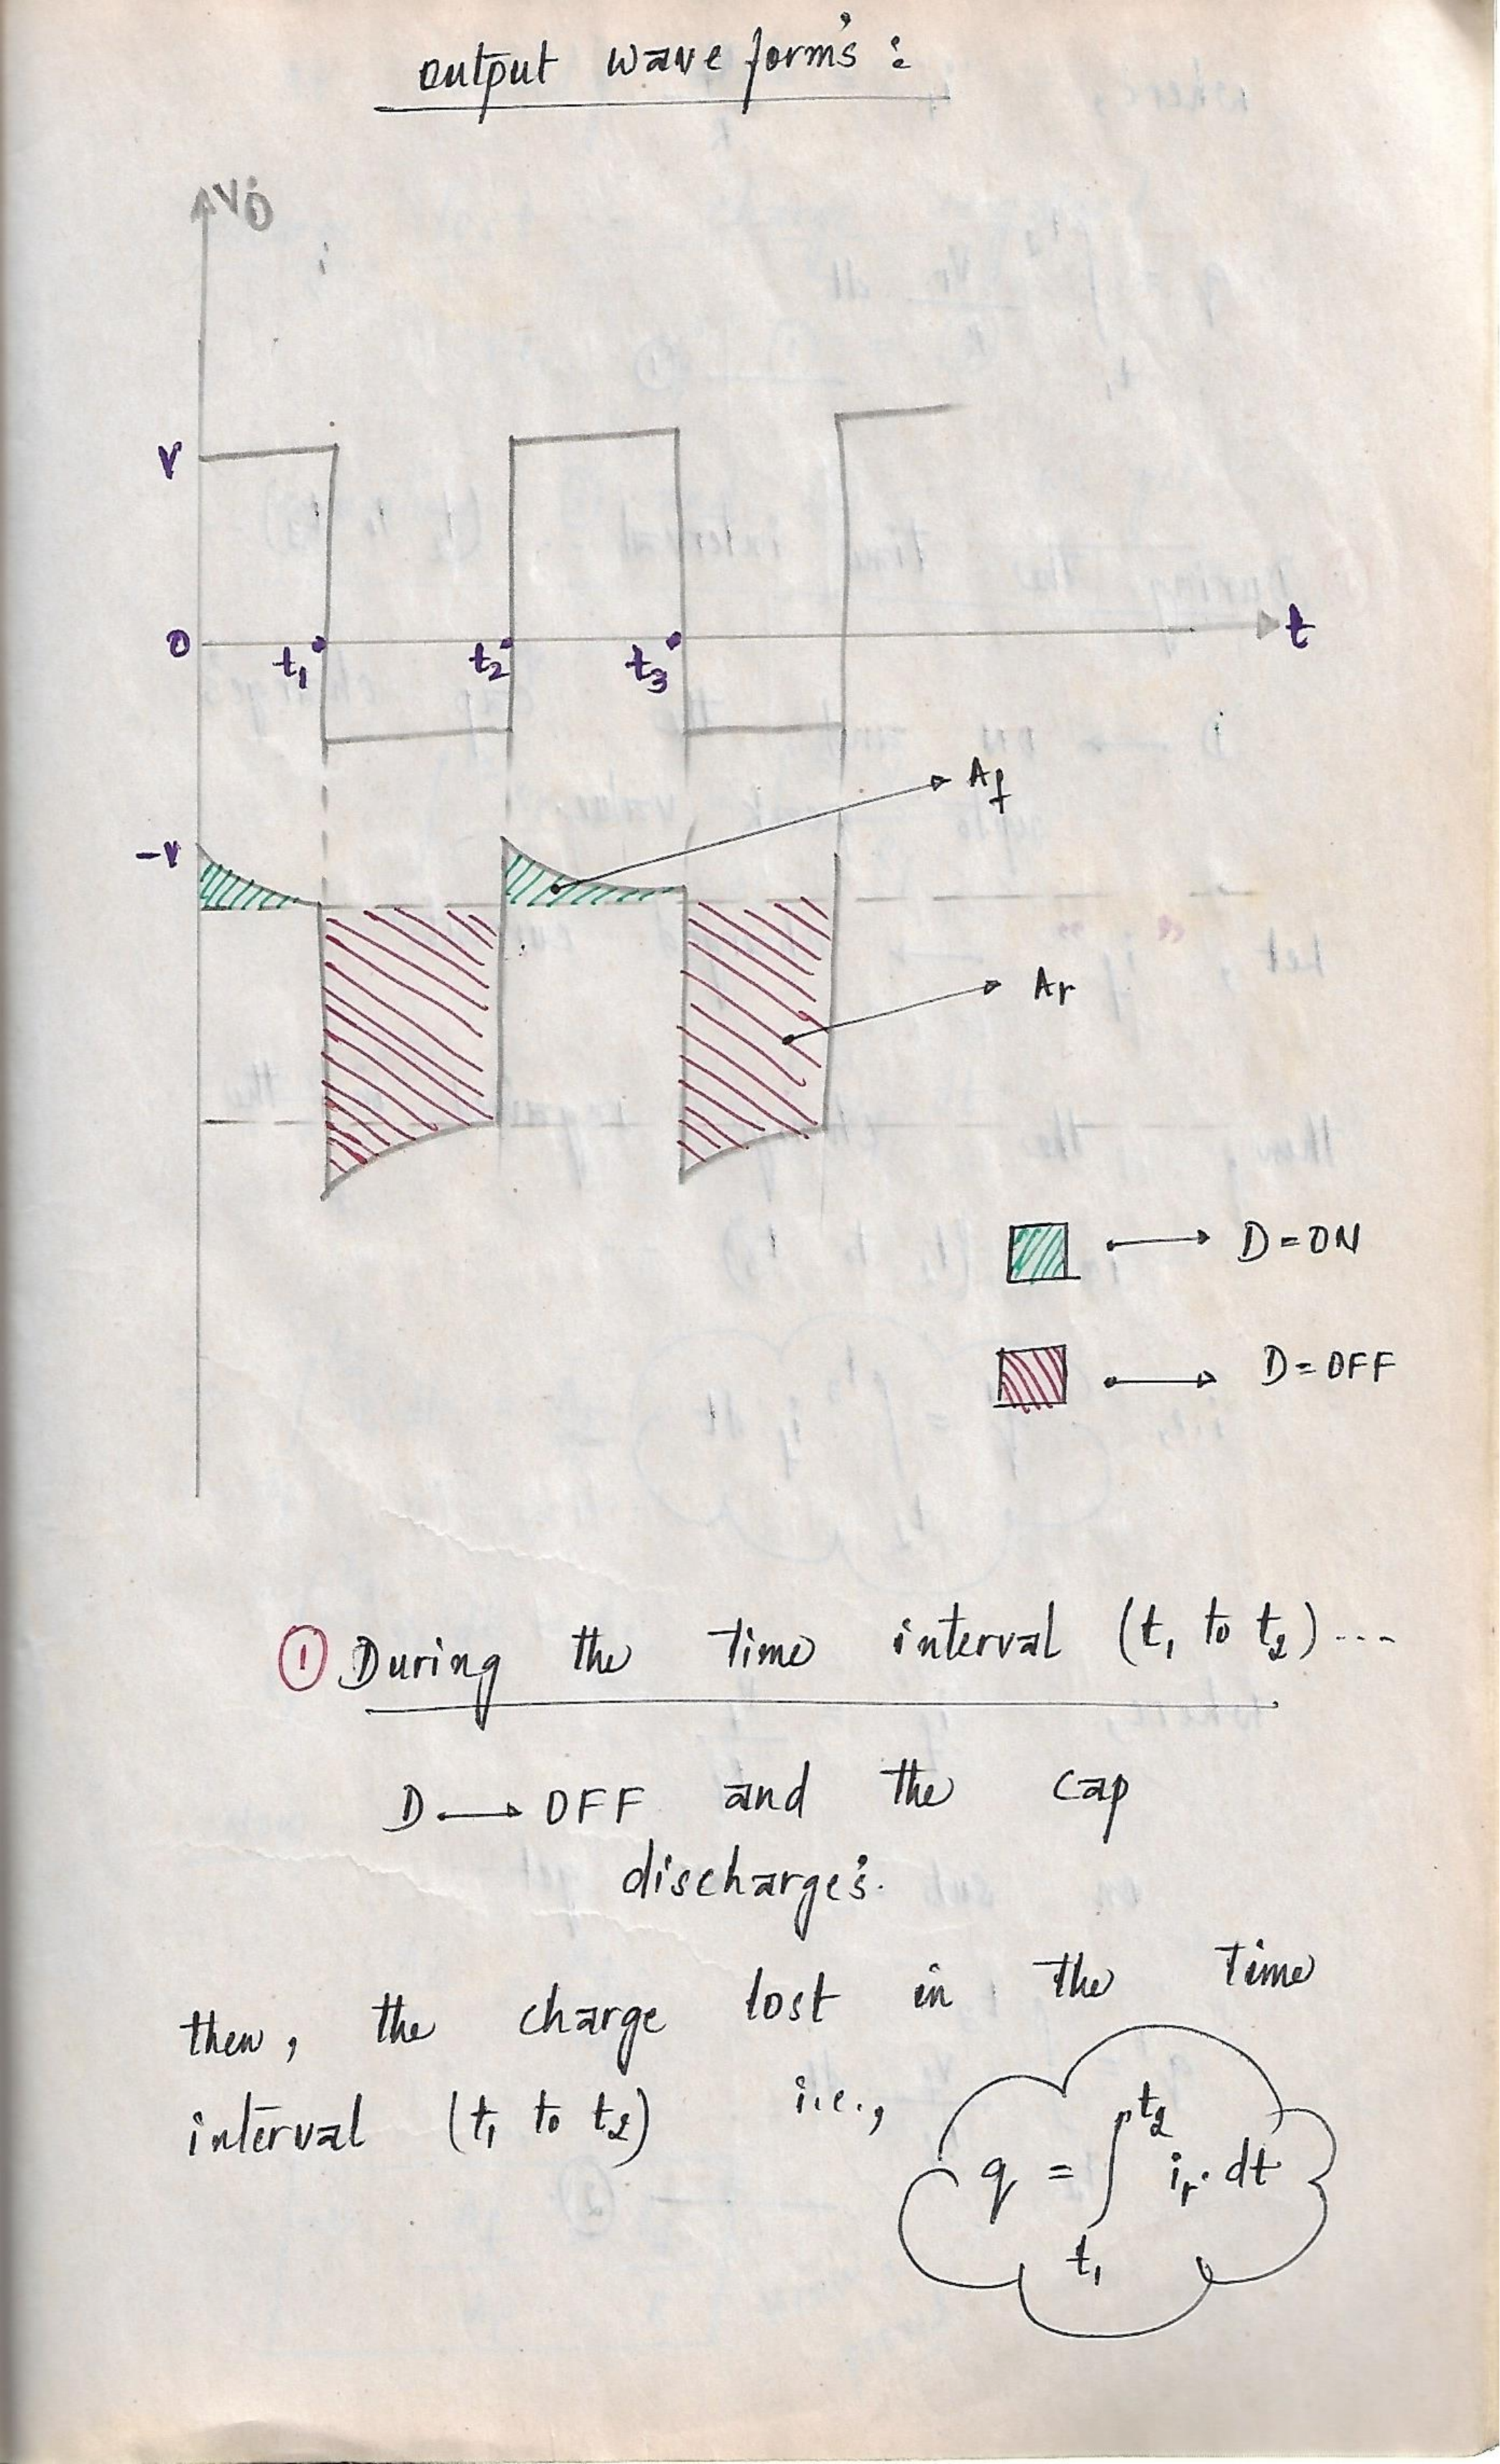 output wave form's :
Vo
V
0
t1
t2
t3
t
-V
Af
Ar
D = ON
D = OFF
① During the time interval (t1 to t2)...
D → OFF and the cap
discharge's.
then, the charge lost in the time
interval (t1 to t2) i.e.,
q = ∫ t1 t2 ir. dt